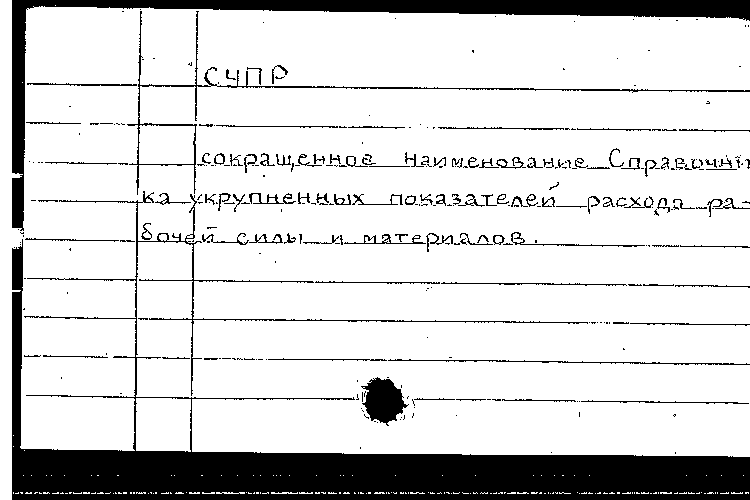 СУПР
сокращенное наименование Справочни
ка укрупненных показателей расхода ра-
бочей силы и материалов.